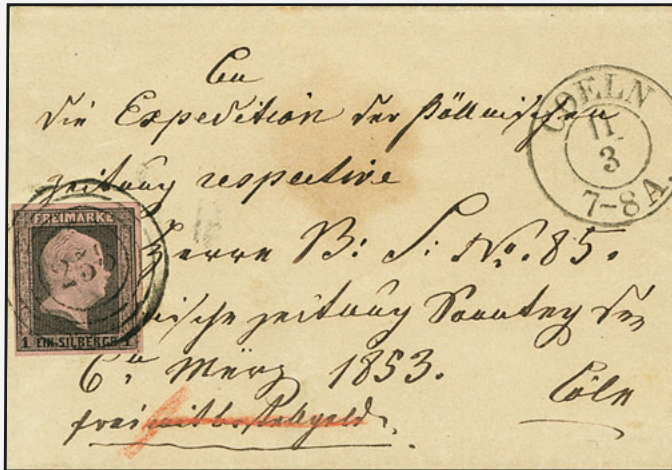 An
die Expedition der Köllnischen
Zeitung respective
Herrn B: S: No. 85.
Zeitung Sonntag den
6n März 1853.
Cöln
frei
COELN
11
3
7-8 A.
FREIMARKE
1 EIN SILBERGR. 1